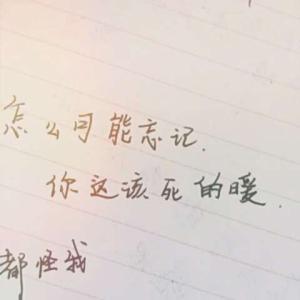 怎么可能忘记.
你这该死的暖.
都怪我